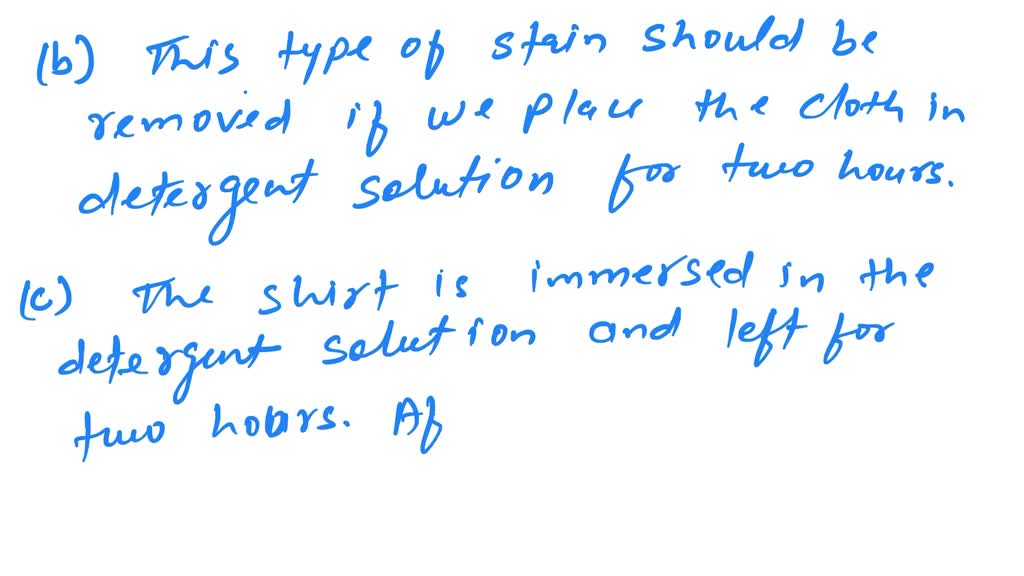 (b) This type of stain should be
removed if we place the cloth in
detergent solution for two hours.
(c) The shirt is immersed in the
detergent solution and left for
two hours. Af